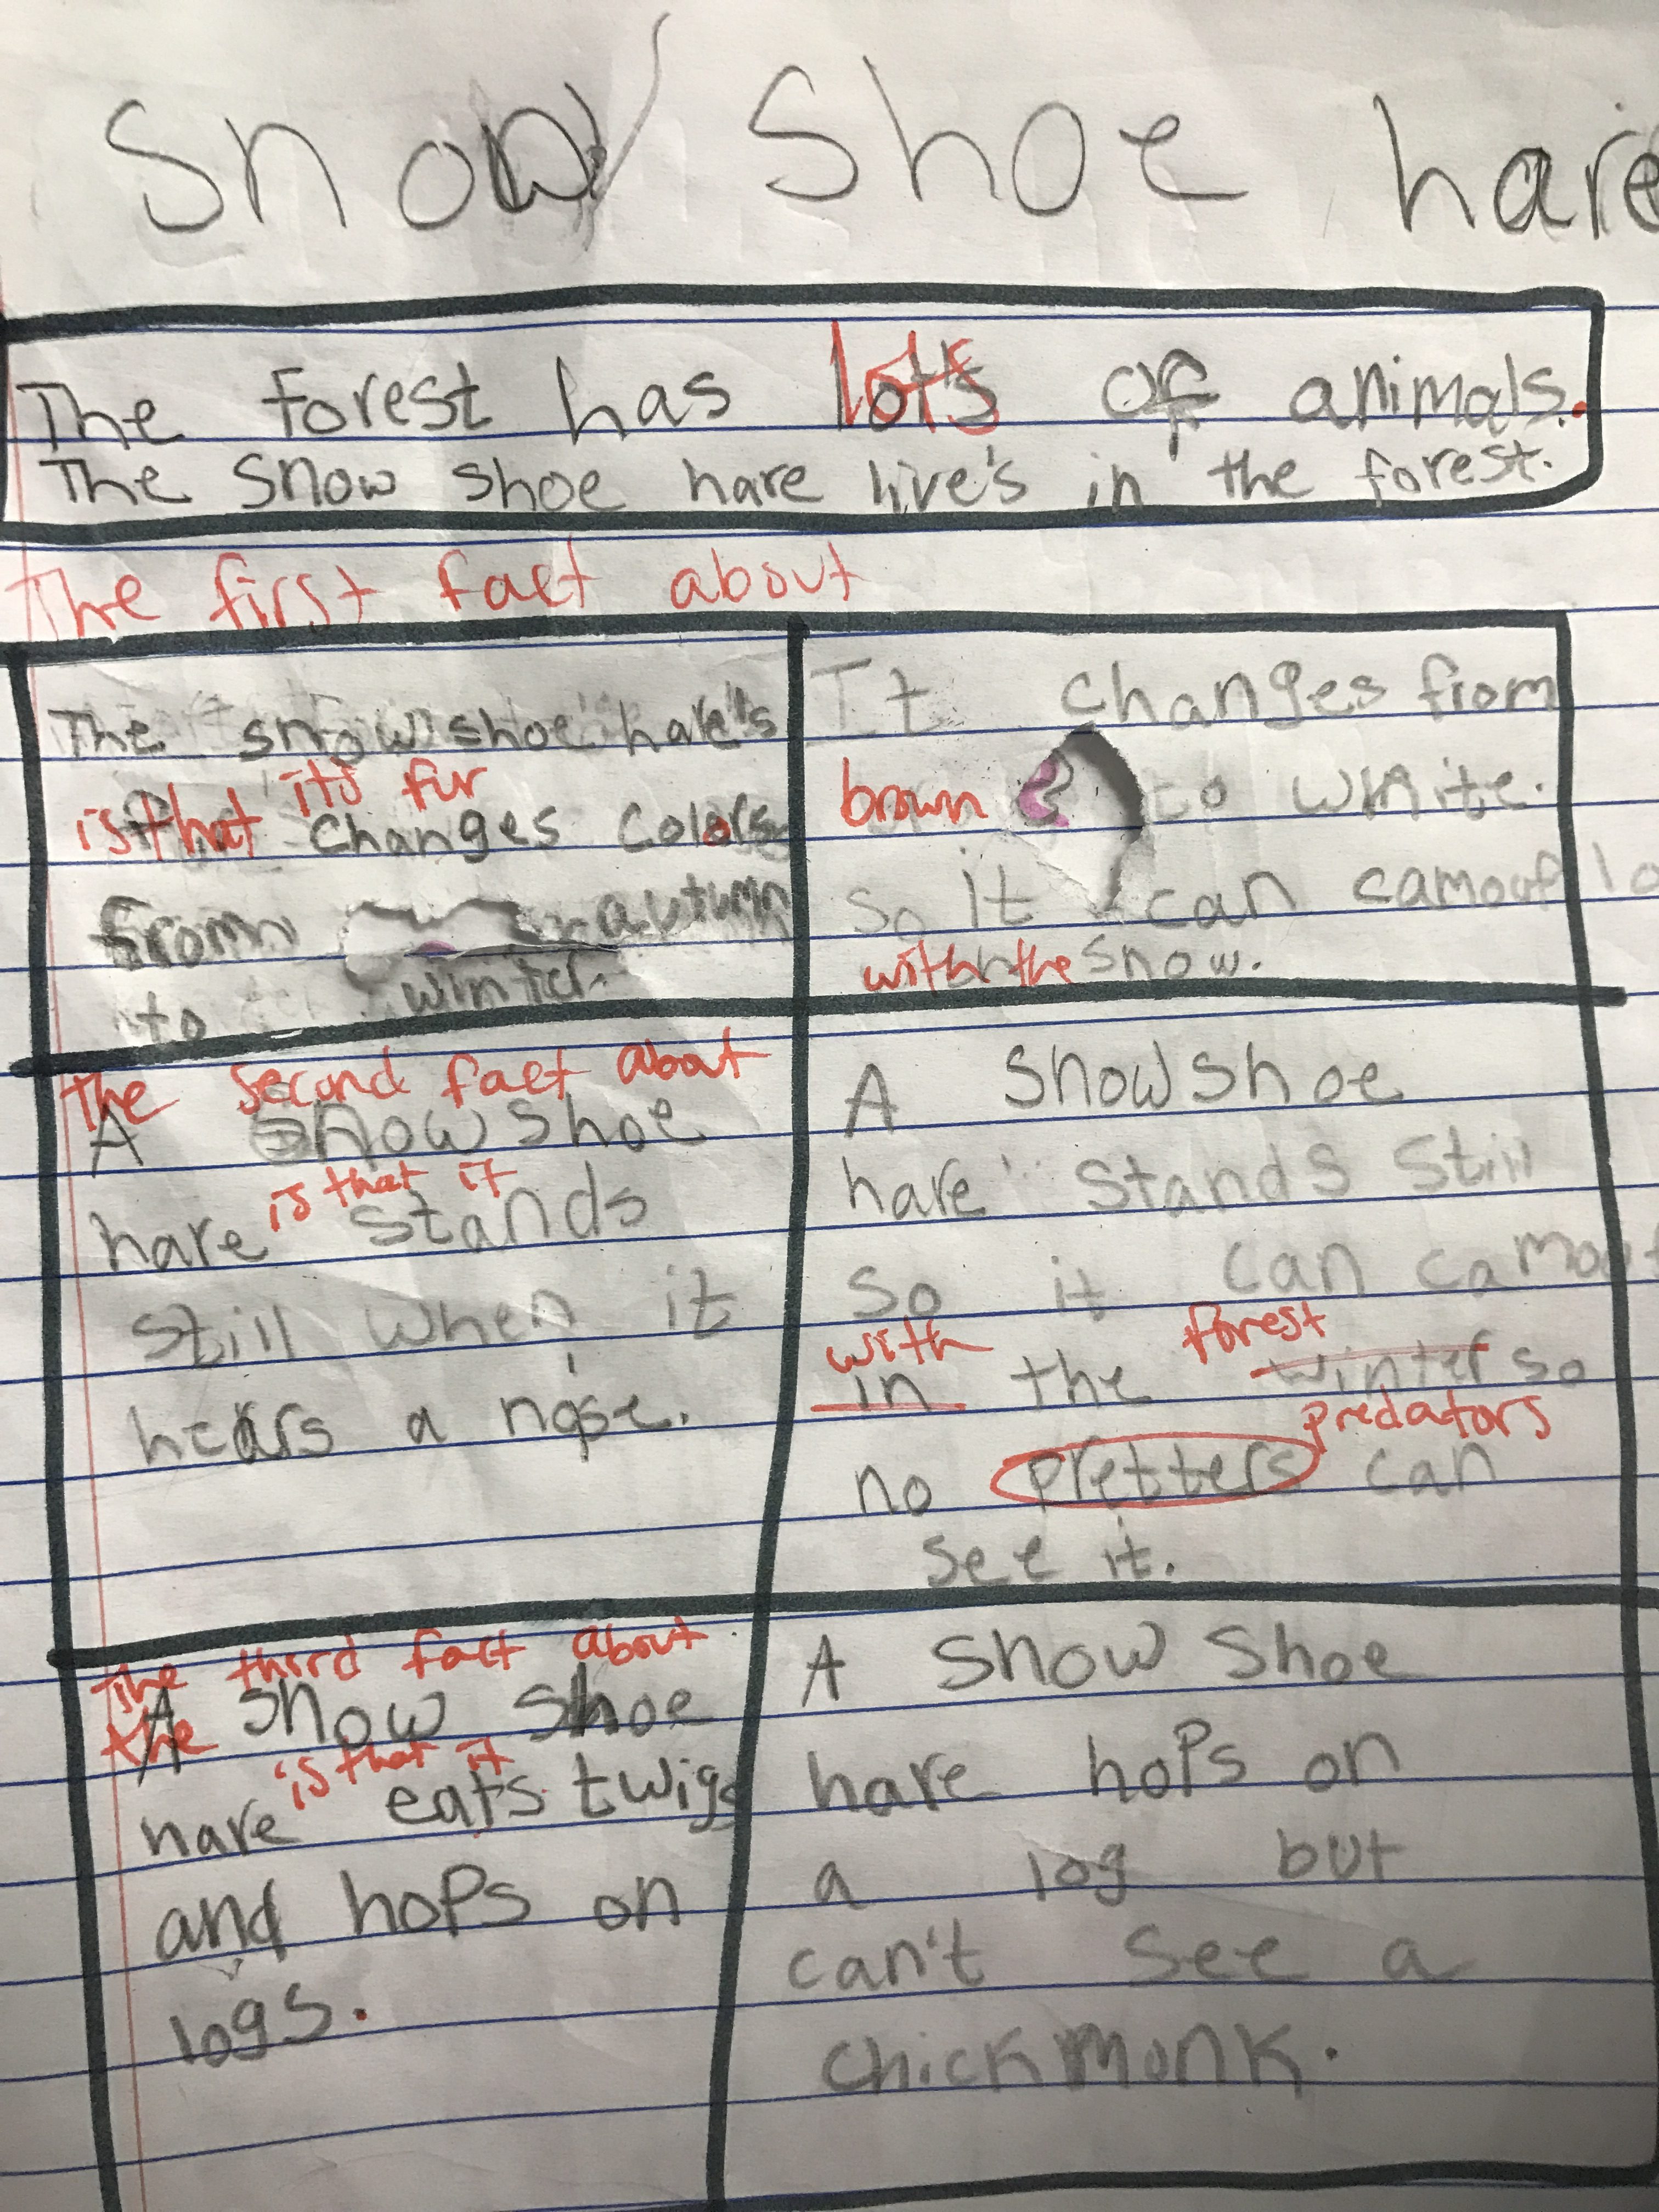 Snow Shoe hare
The forest has lots of animals.
The Snow shoe hare live's in the forest.
The first fact about
The snow shoe hare's
is that its fur
changes colors
from autumn
to winter.
It changes from
brown to white.
so it can camouflo
with the snow.
The second fact about
A snowshoe
is that it
hare stands
still when it
hears a noise.
A snowshoe
hare stands still
so it can camouf
with forest
in the winter so
predators
no pretters can
see it.
The third fact about
the A snow shoe
is that it
hare eats twigs
and hops on
logs.
A snow shoe
hare hops on
a log but
can't see a
chickmunk.